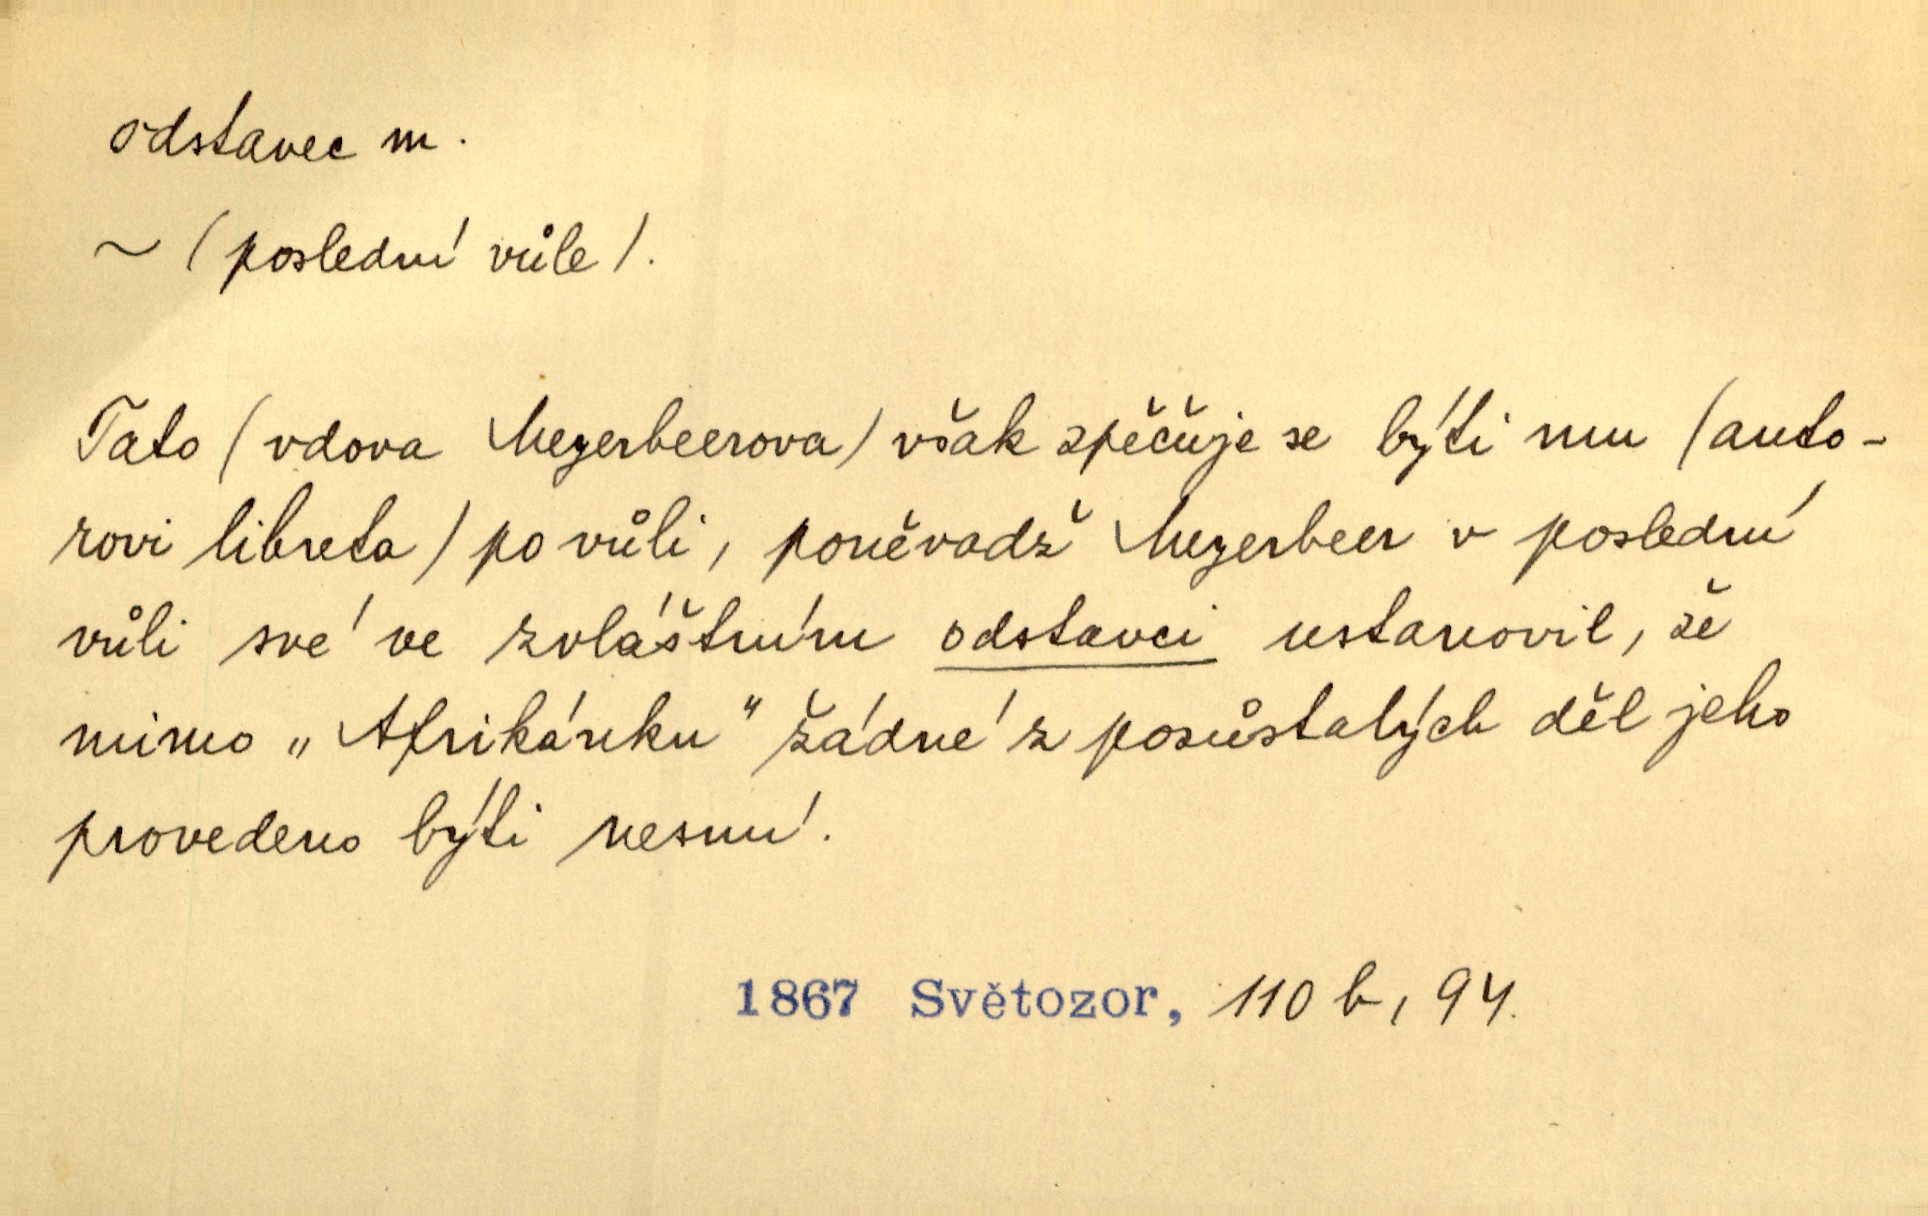 odstavec m.
~ (poslední vůle).
Tato (vdova Meyerbeerova) však zpěčuje se býti mu (auto-
rovi libreta) po vůli, poněvadž Meyerbeer v poslední
vůli své ve zvláštním odstavci ustanovil, že
mimo „Afrikánku" žádné z pozůstalých děl jeho
provedeno býti nesmí.
1867 Světozor, 110 b, 94.